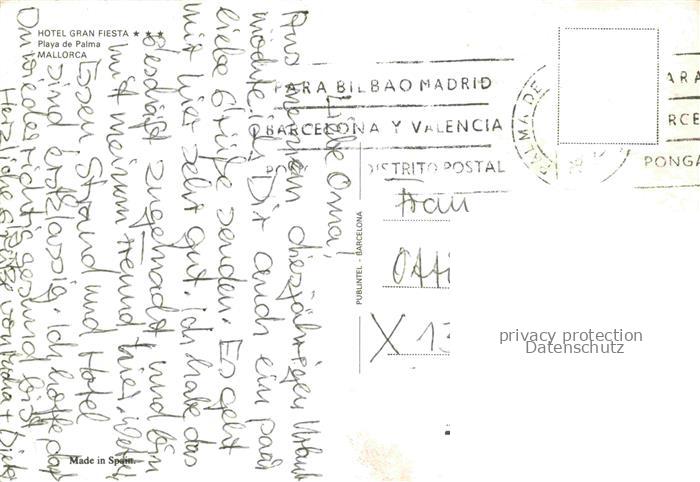 HOTEL GRAN FIESTA ★ ★ ★
Playa de Palma
MALLORCA
Liebe Oma!
Aus meinem diesjährigen Urlaub
möchte ich Dir auch ein paar
liebe Grüße senden. Es geht
mir hier sehr gut. Ich habe das
Geschäft zugemacht und bin
mit meinem Freund hier.
Essen, Strand und Hotel
sind erstklassig. Ich hoffe daß
Du wieder richtig gesund bist
Herzliche Grüße von + 
Made in Spain.
PUBLINTEL - BARCELONA
PARA BILBAO MADRID
BARCELONA Y VALENCIA
DISTRITO POSTAL
PALMA DE
ARA
RCE
PONGA
Frau
Otti
X 13
privacy protection
Datenschutz